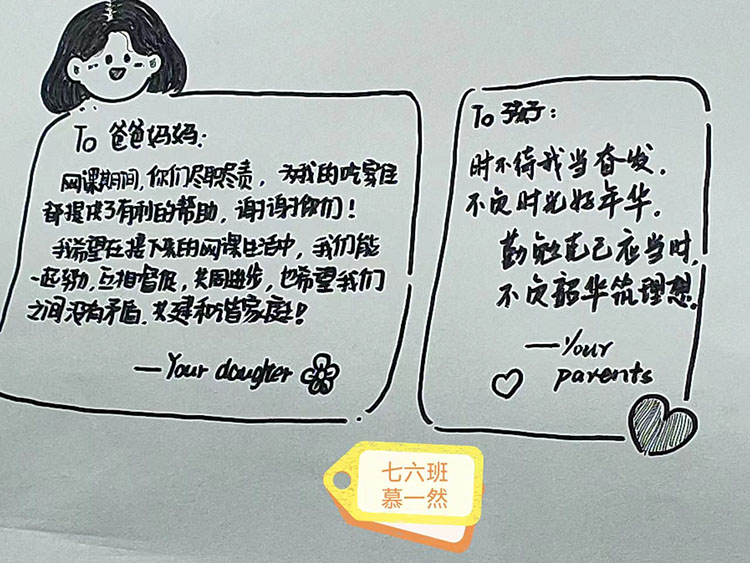 To 爸爸妈妈:
网课期间,你们尽职尽责,为我的吃穿住
都提供了有利的帮助,谢谢你们!
我希望在接下来的网课生活中,我们能
一起努力,互相督促,共同进步,也希望我们
之间没有矛盾,共建和谐家庭!
—Your daugher
To 孩子:
时不待我当奋发,
不负时光好年华。
勤勉克己应当时,
不负韶华筑理想。
—Your
parents
七六班
慕一然